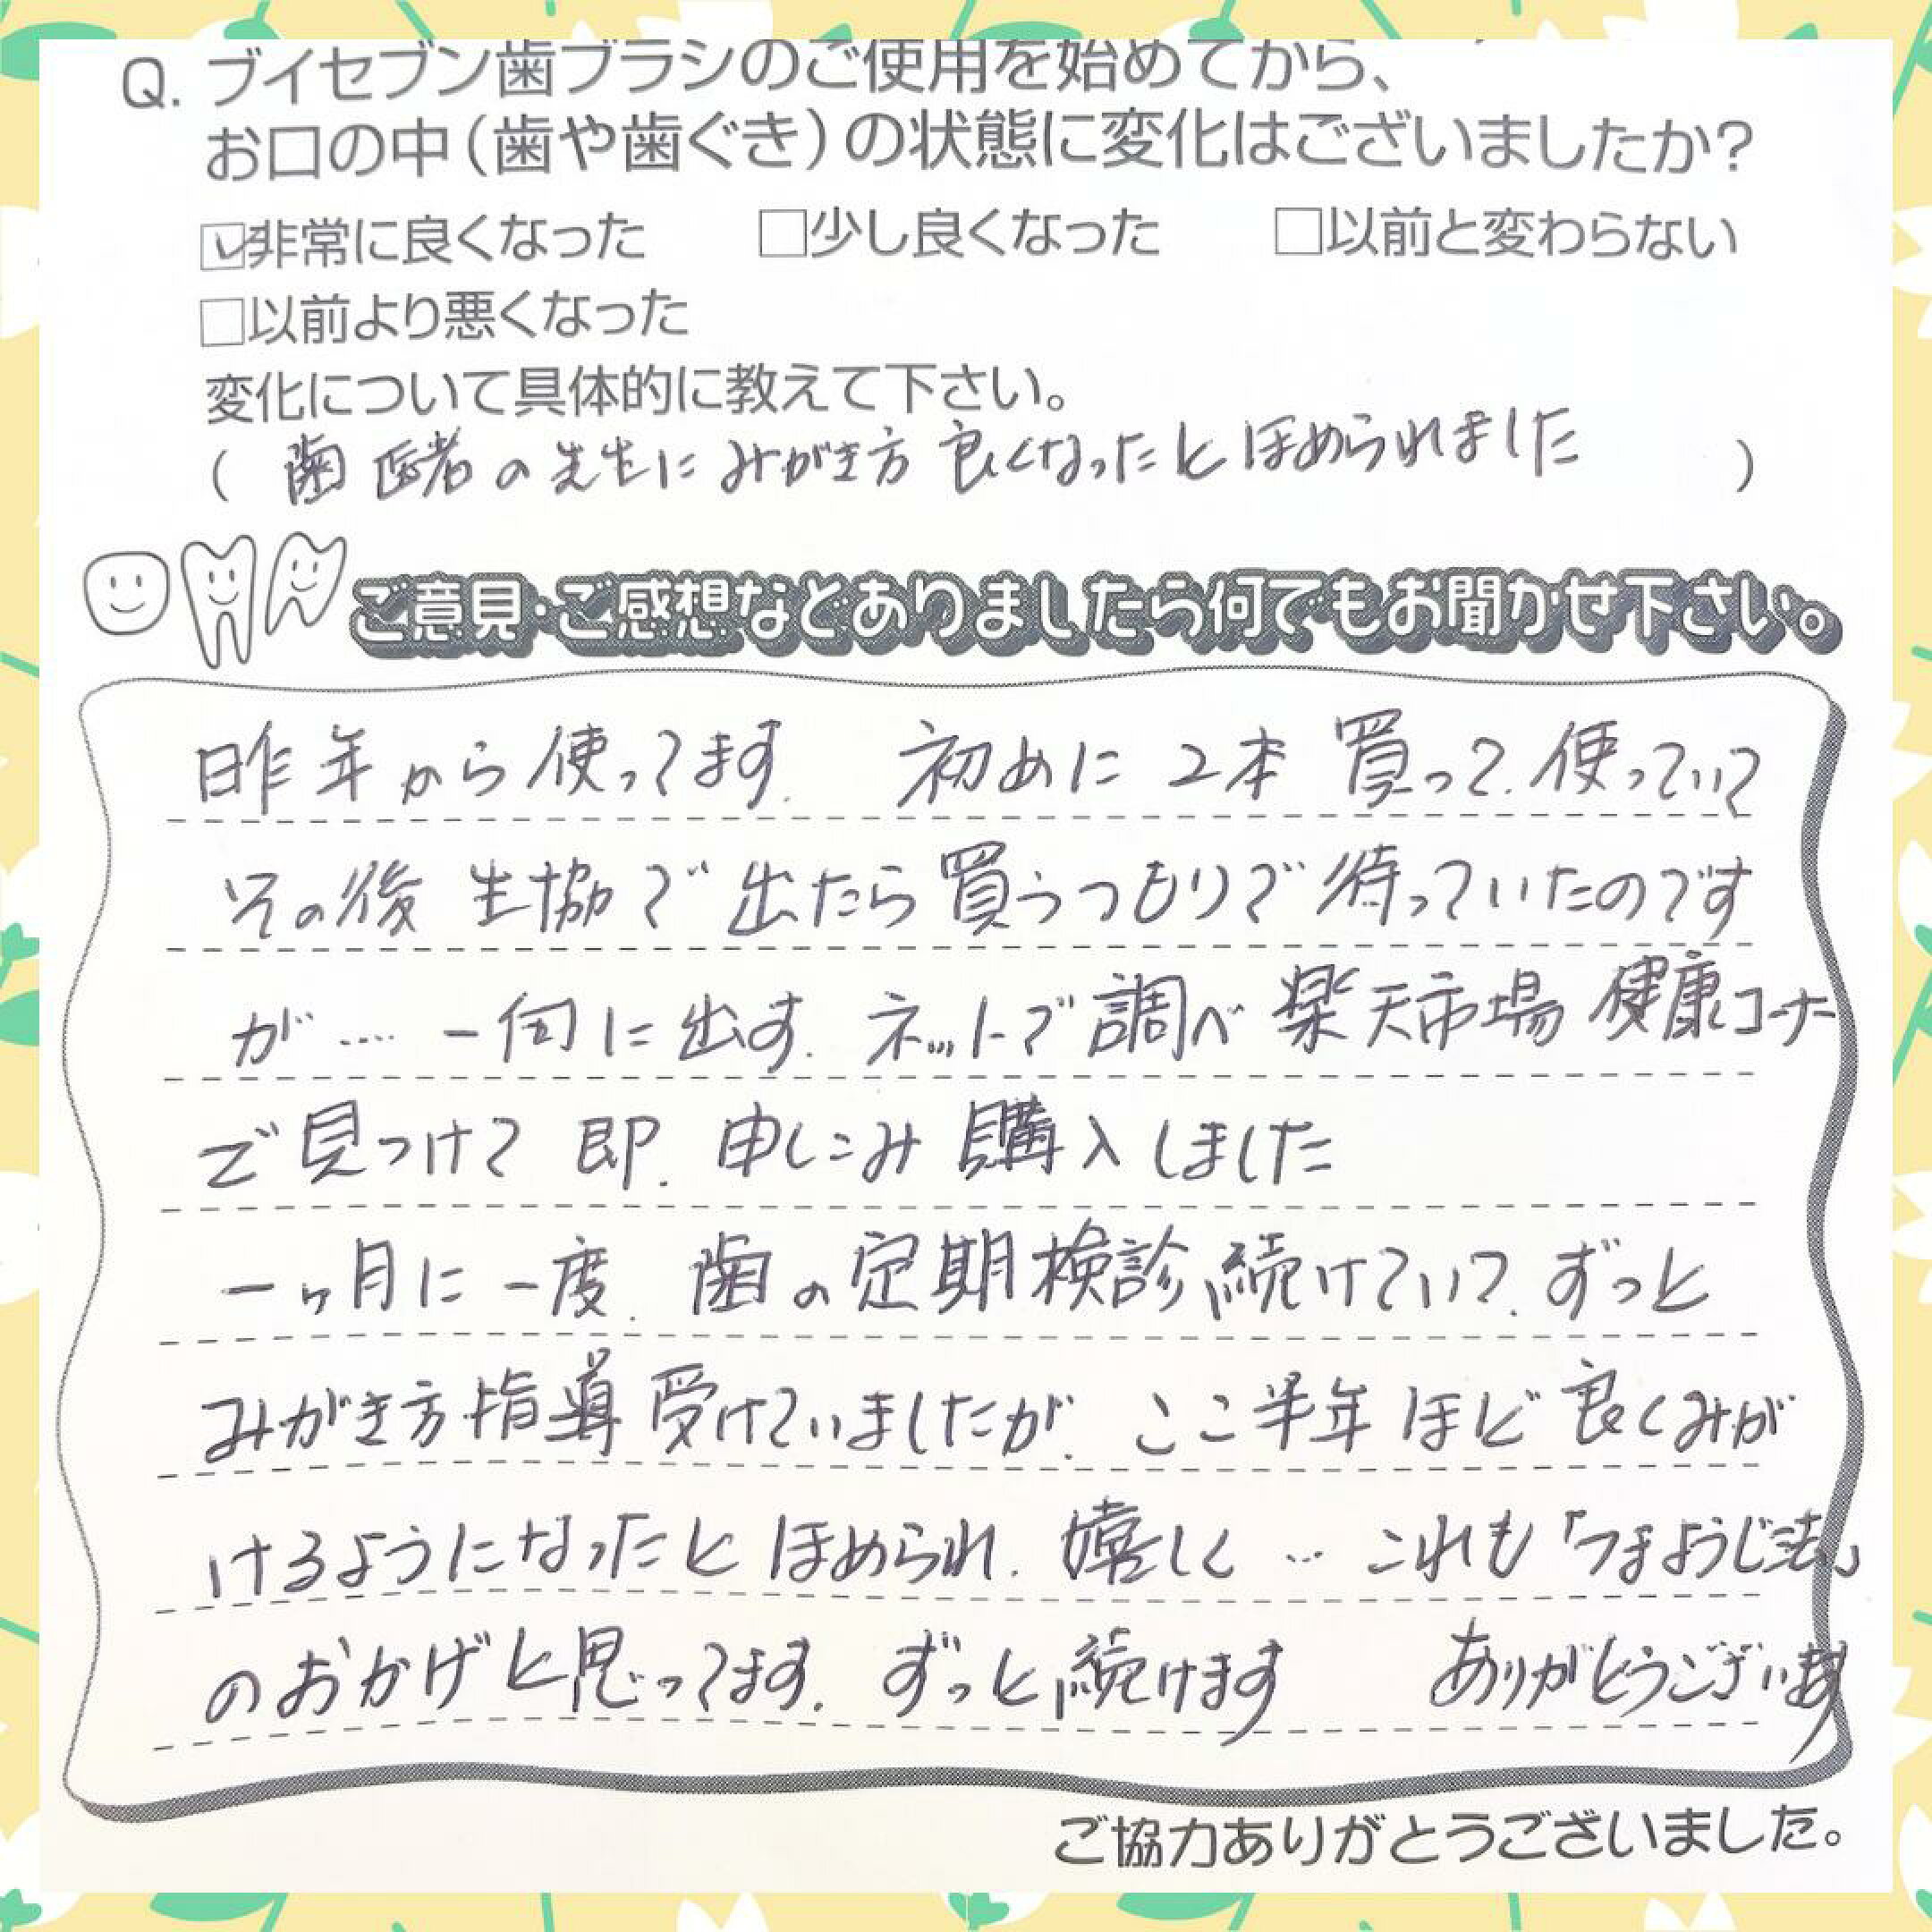 Q. ブイセブン歯ブラシのご使用を始めてから、
お口の中(歯や歯ぐき)の状態に変化はございましたか?
☑非常に良くなった □少し良くなった □以前と変わらない
□以前より悪くなった
変化について具体的に教えて下さい。
( 歯医者の先生にみがき方良くなったとほめられました )
ご意見・ご感想などありましたら何でもお聞かせ下さい。
昨年から使ってます. 初めに2本買って.使っていて
その後生協で出たら買うつもりで待っていたのです
が…. 一向に出ず.ネットで調べ楽天市場健康コーナー
で見つけて即.申しこみ購入しました
一ヶ月に一度.歯の定期検診続けていて.ずっと
みがき方指導受けていましたが.ここ半年ほど良くみが
けるようになったとほめられ.嬉しく…これも「つまようじ法」
のおかげと思ってます.ずっと続けます ありがとうございます
ご協力ありがとうございました。